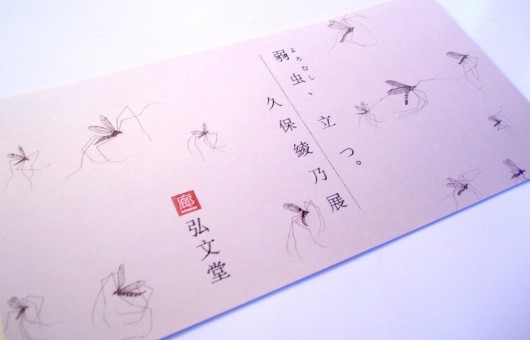 よろむし、
弱虫、立つ。
久保綾乃展
廊
弘文堂